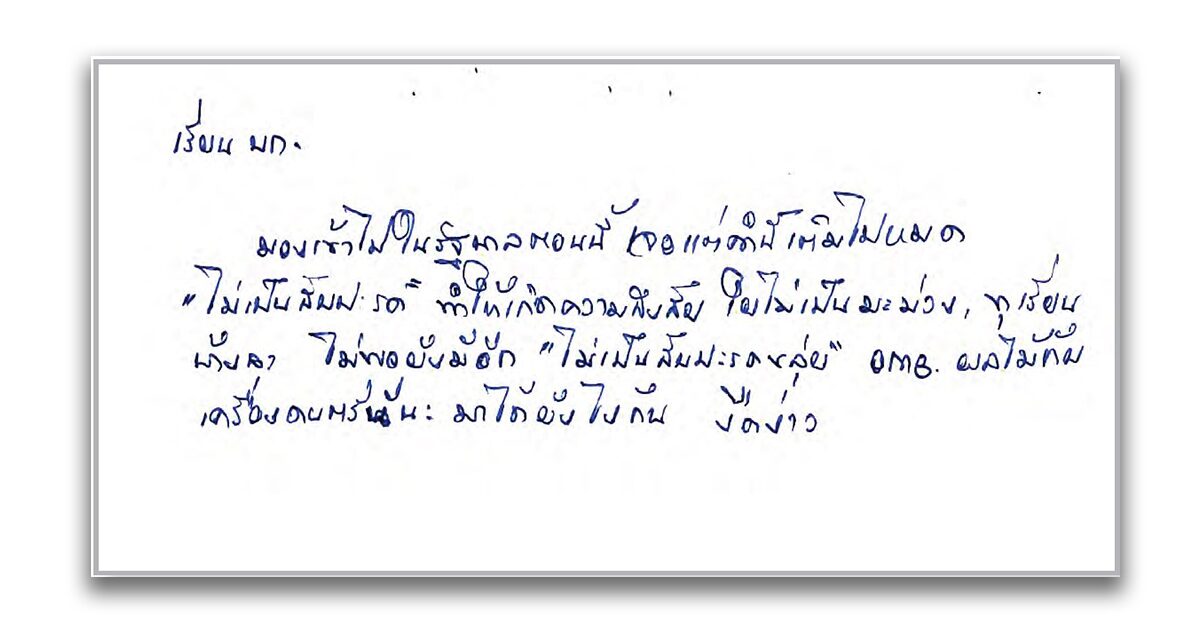 เรียน บก.
มองเข้าไปในรัฐบาลตอนนี้ เจอแต่คำนี้เต็มไปหมด
"ไม่เป็นสับปะรด" ทำให้เกิดความสงสัย ใยไม่เป็นมะม่วง, ทุเรียน
น้อยหน่า ไม่พอยังมีอีก "ไม่เป็นสับปะรดขลุ่ย" งง. ผลไม้กับ
เครื่องดนตรีเนี่ยนะ มาได้ยังไงกัน